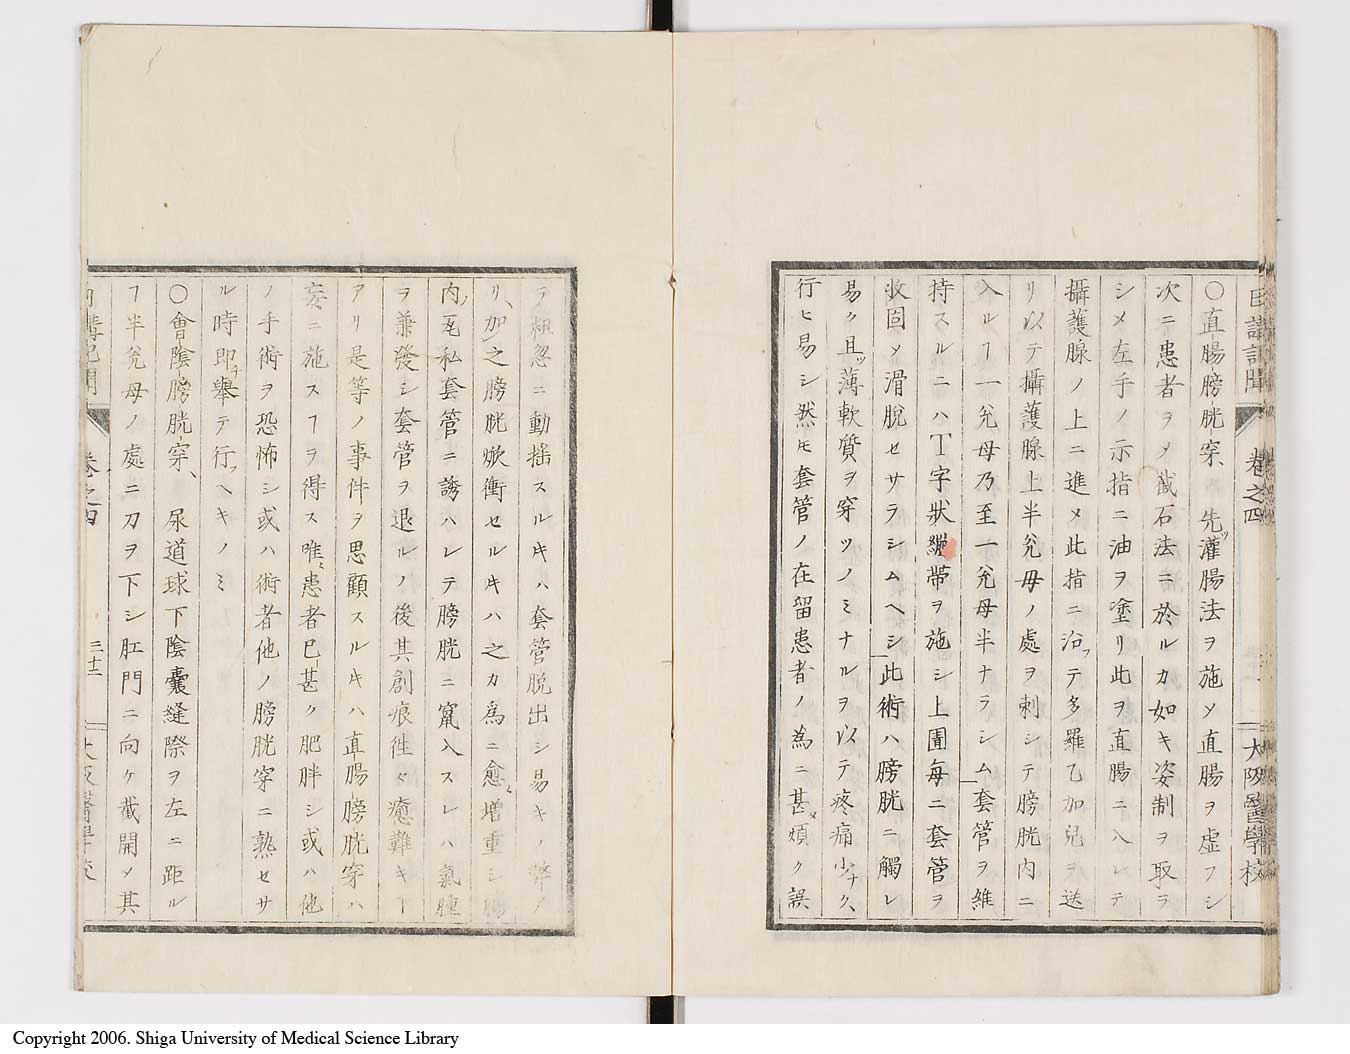 卷之四
大阪醫學校
〇直腸膀胱穿、先ツ灌腸法ヲ施メ直腸ヲ虚フシ
次ニ患者ヲメ截石法ニ於ルカ如キ姿制ヲ取ラ
シメ左手ノ示指ニ油ヲ塗リ此ヲ直腸ニ入レテ
攝護腺ノ上ニ進メ此指ニ沿フテ多羅乙加兒ヲ送
リ以テ攝護腺上半兊母ノ處ヲ刺シテ膀胱内ニ
入ルヿ一兊母乃至一兊母半ナラシム套管ヲ維
持スルニハT字狀繃帶ヲ施シ上圊每ニ套管ヲ
收固メ滑脫セサラシムヘシ此術ハ膀胱ニ觸レ
易ク且ツ薄軟質ヲ穿ツノミナルヲ以テ疼痛少ナク、
行ヒ易シ然𪜈套管ノ在留患者ノ為ニ甚タ煩ク誤
テ粗忽ニ動揺スルキハ套管脫出シ易キノ弊ア
リ、加之膀胱焮衝セルキハ之カ為ニ愈〻增重シ
内瓦私套管ニ誘ハレテ膀胱ニ竄入スレハ氣腫
ヲ兼發シ套管ヲ退ルノ後其創痕徃々癒難キヿ
アリ是等ノ事件ヲ思顧スルキハ直腸膀胱穿ハ
妄ニ施スヿヲ得ス唯〻患者已ニ甚ク肥胖シ或ハ他
ノ手術ヲ恐怖シ或ハ術者他ノ膀胱穿ニ熟セサ
ル時即チ舉テ行フヘキノミ
〇會陰膀胱穿、尿道球下陰囊縫際ヲ左ニ距ル
ヿ半兊母ノ處ニ刀ヲ下シ肛門ニ向ケ截開メ其
卷之四
三十二
大阪醫學校
Copyright 2006. Shiga University of Medical Science Library